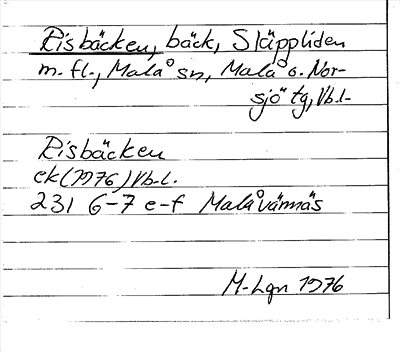 Risbäcken, bäck, Släppliden
m. fl., Malå sn, Malå o. Nor-
sjö tg, Vb.l.
Risbäcken
ek (1976) Vb.l.
23I 6-7 e-f Malåvännäs
M-Lgn 1976